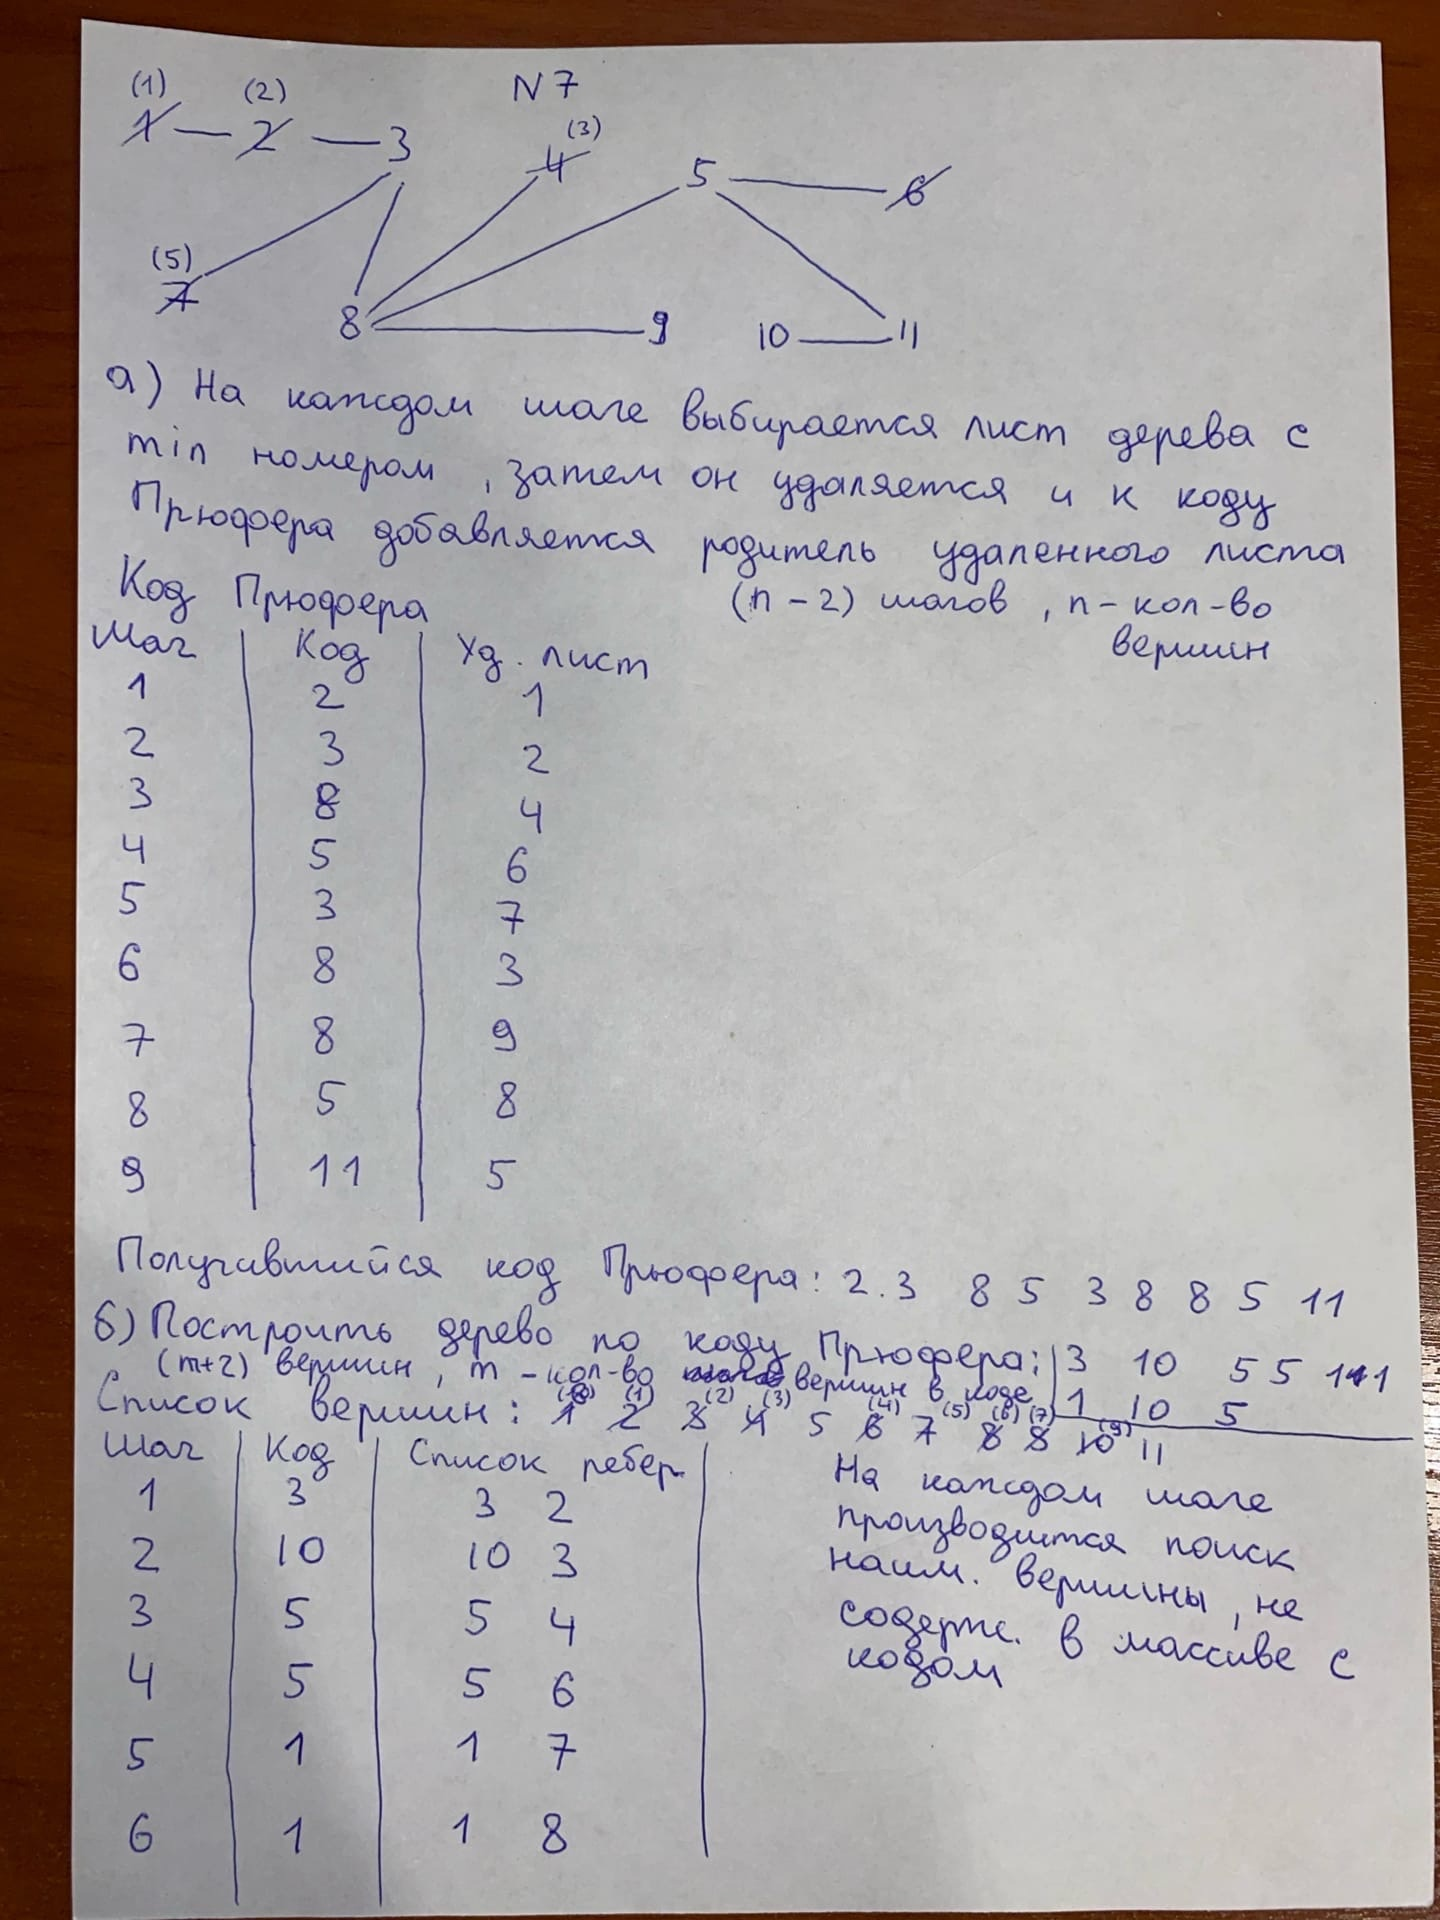 N 7
(1) (2) (3)
1 — 2 — 3 4 5 6
(5)
7 8 9 10 — 11
а) На каждом шаге выбирается лист дерева с
min номером, затем он удаляется и к коду
Прюфера добавляется родитель удаленного листа
Код Прюфера (n - 2) шагов, n - кол-во
вершин
Шаг Код Уд. лист
1 2 1
2 3 2
3 8 4
4 5 6
5 3 7
6 8 3
7 8 9
8 5 8
9 11 5
Получившийся код Прюфера: 2.3 8 5 3 8 8 5 11
б) Построить дерево по коду Прюфера: 3 10 5 5 1 1
(m+2) вершин, m - кол-во вершин в коде 1 10 5
(1) (2) (3) (4) (5) (6) (7) (9)
Список вершин: 1 2 3 4 5 6 7 8 8 10 11
Шаг Код Список ребер
1 3 3 2
2 10 10 3
3 5 5 4
4 5 5 6
5 1 1 7
6 1 1 8
На каждом шаге
производится поиск
наим. вершины, не
содерж. в массиве с
кодом